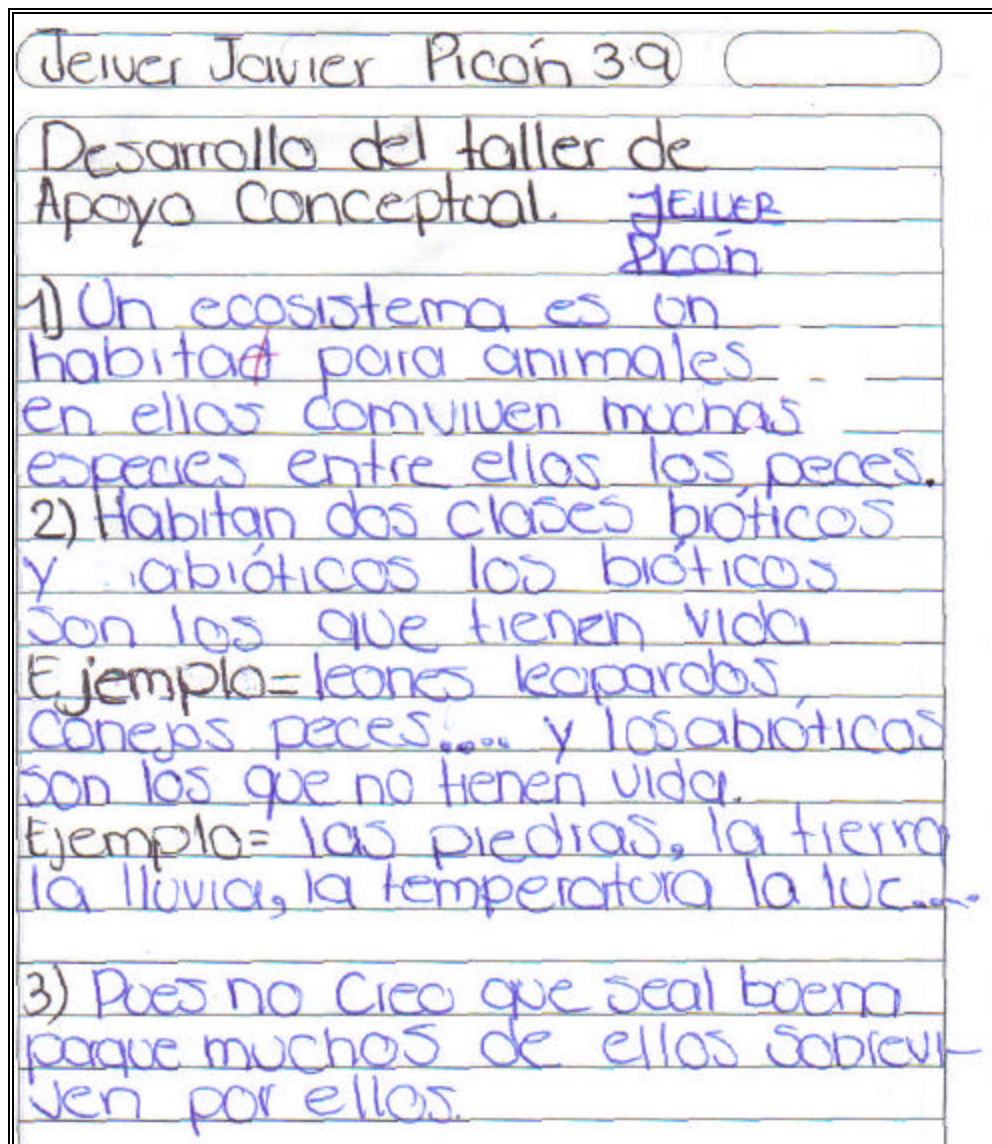 Jeiver Javier Picón 3.9
Desarrollo del taller de
Apoyo Conceptual. JEIVER
Picón
1) Un ecosistema es un
habitad para animales
en ellos comviven muchas
especies entre ellos los peces.
2) Habitan dos clases bióticos
y abióticos los bióticos
son los que tienen vida
Ejemplo= leones leopardos
Conejos peces..... y los abióticos
son los que no tienen vida.
Ejemplo= las piedras, la tierra
la lluvia, la temperatura la luc.....
3) Pues no Creo que seal buena
porque muchos de ellos sobrevi-
ven por ellos.